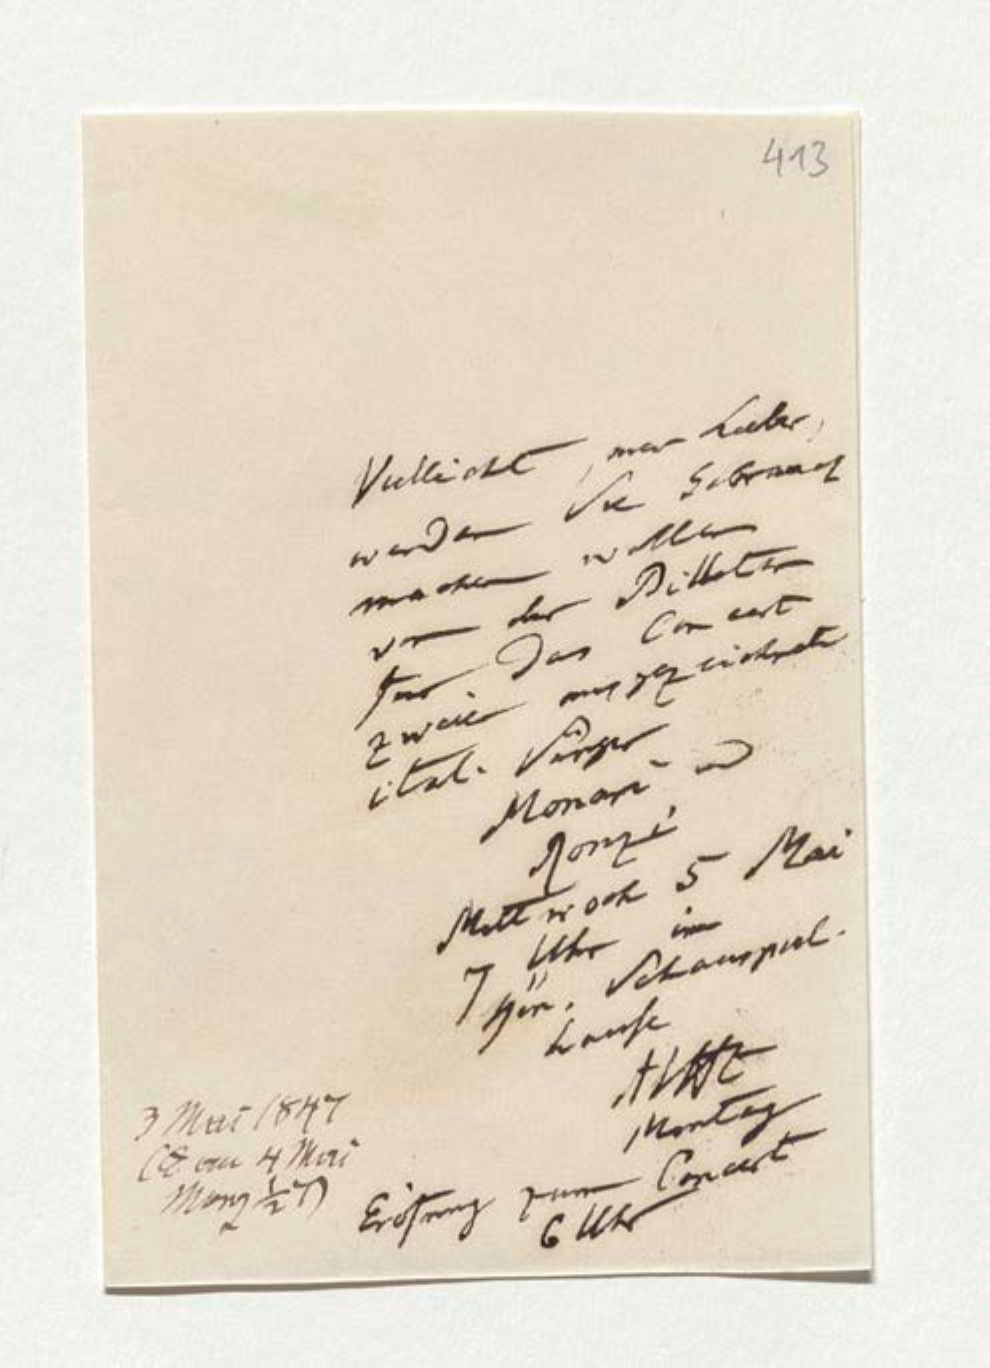 413
Vielleicht, mein Lieber,
werden Sie Gebrauch
machen wollen
von der Billeten
für das Concert
zweier ausgezeichnete
ital. Sänger
Monari und
Ronzi
Mittwoch 5 Mai
7 Uhr im
Kön. Schauspiel-
hause
AvHt
Montag
Eröfnung zum Concert
6 Uhr
3 Mai 1847
(E am 4 Mai
Morg ½ 7)